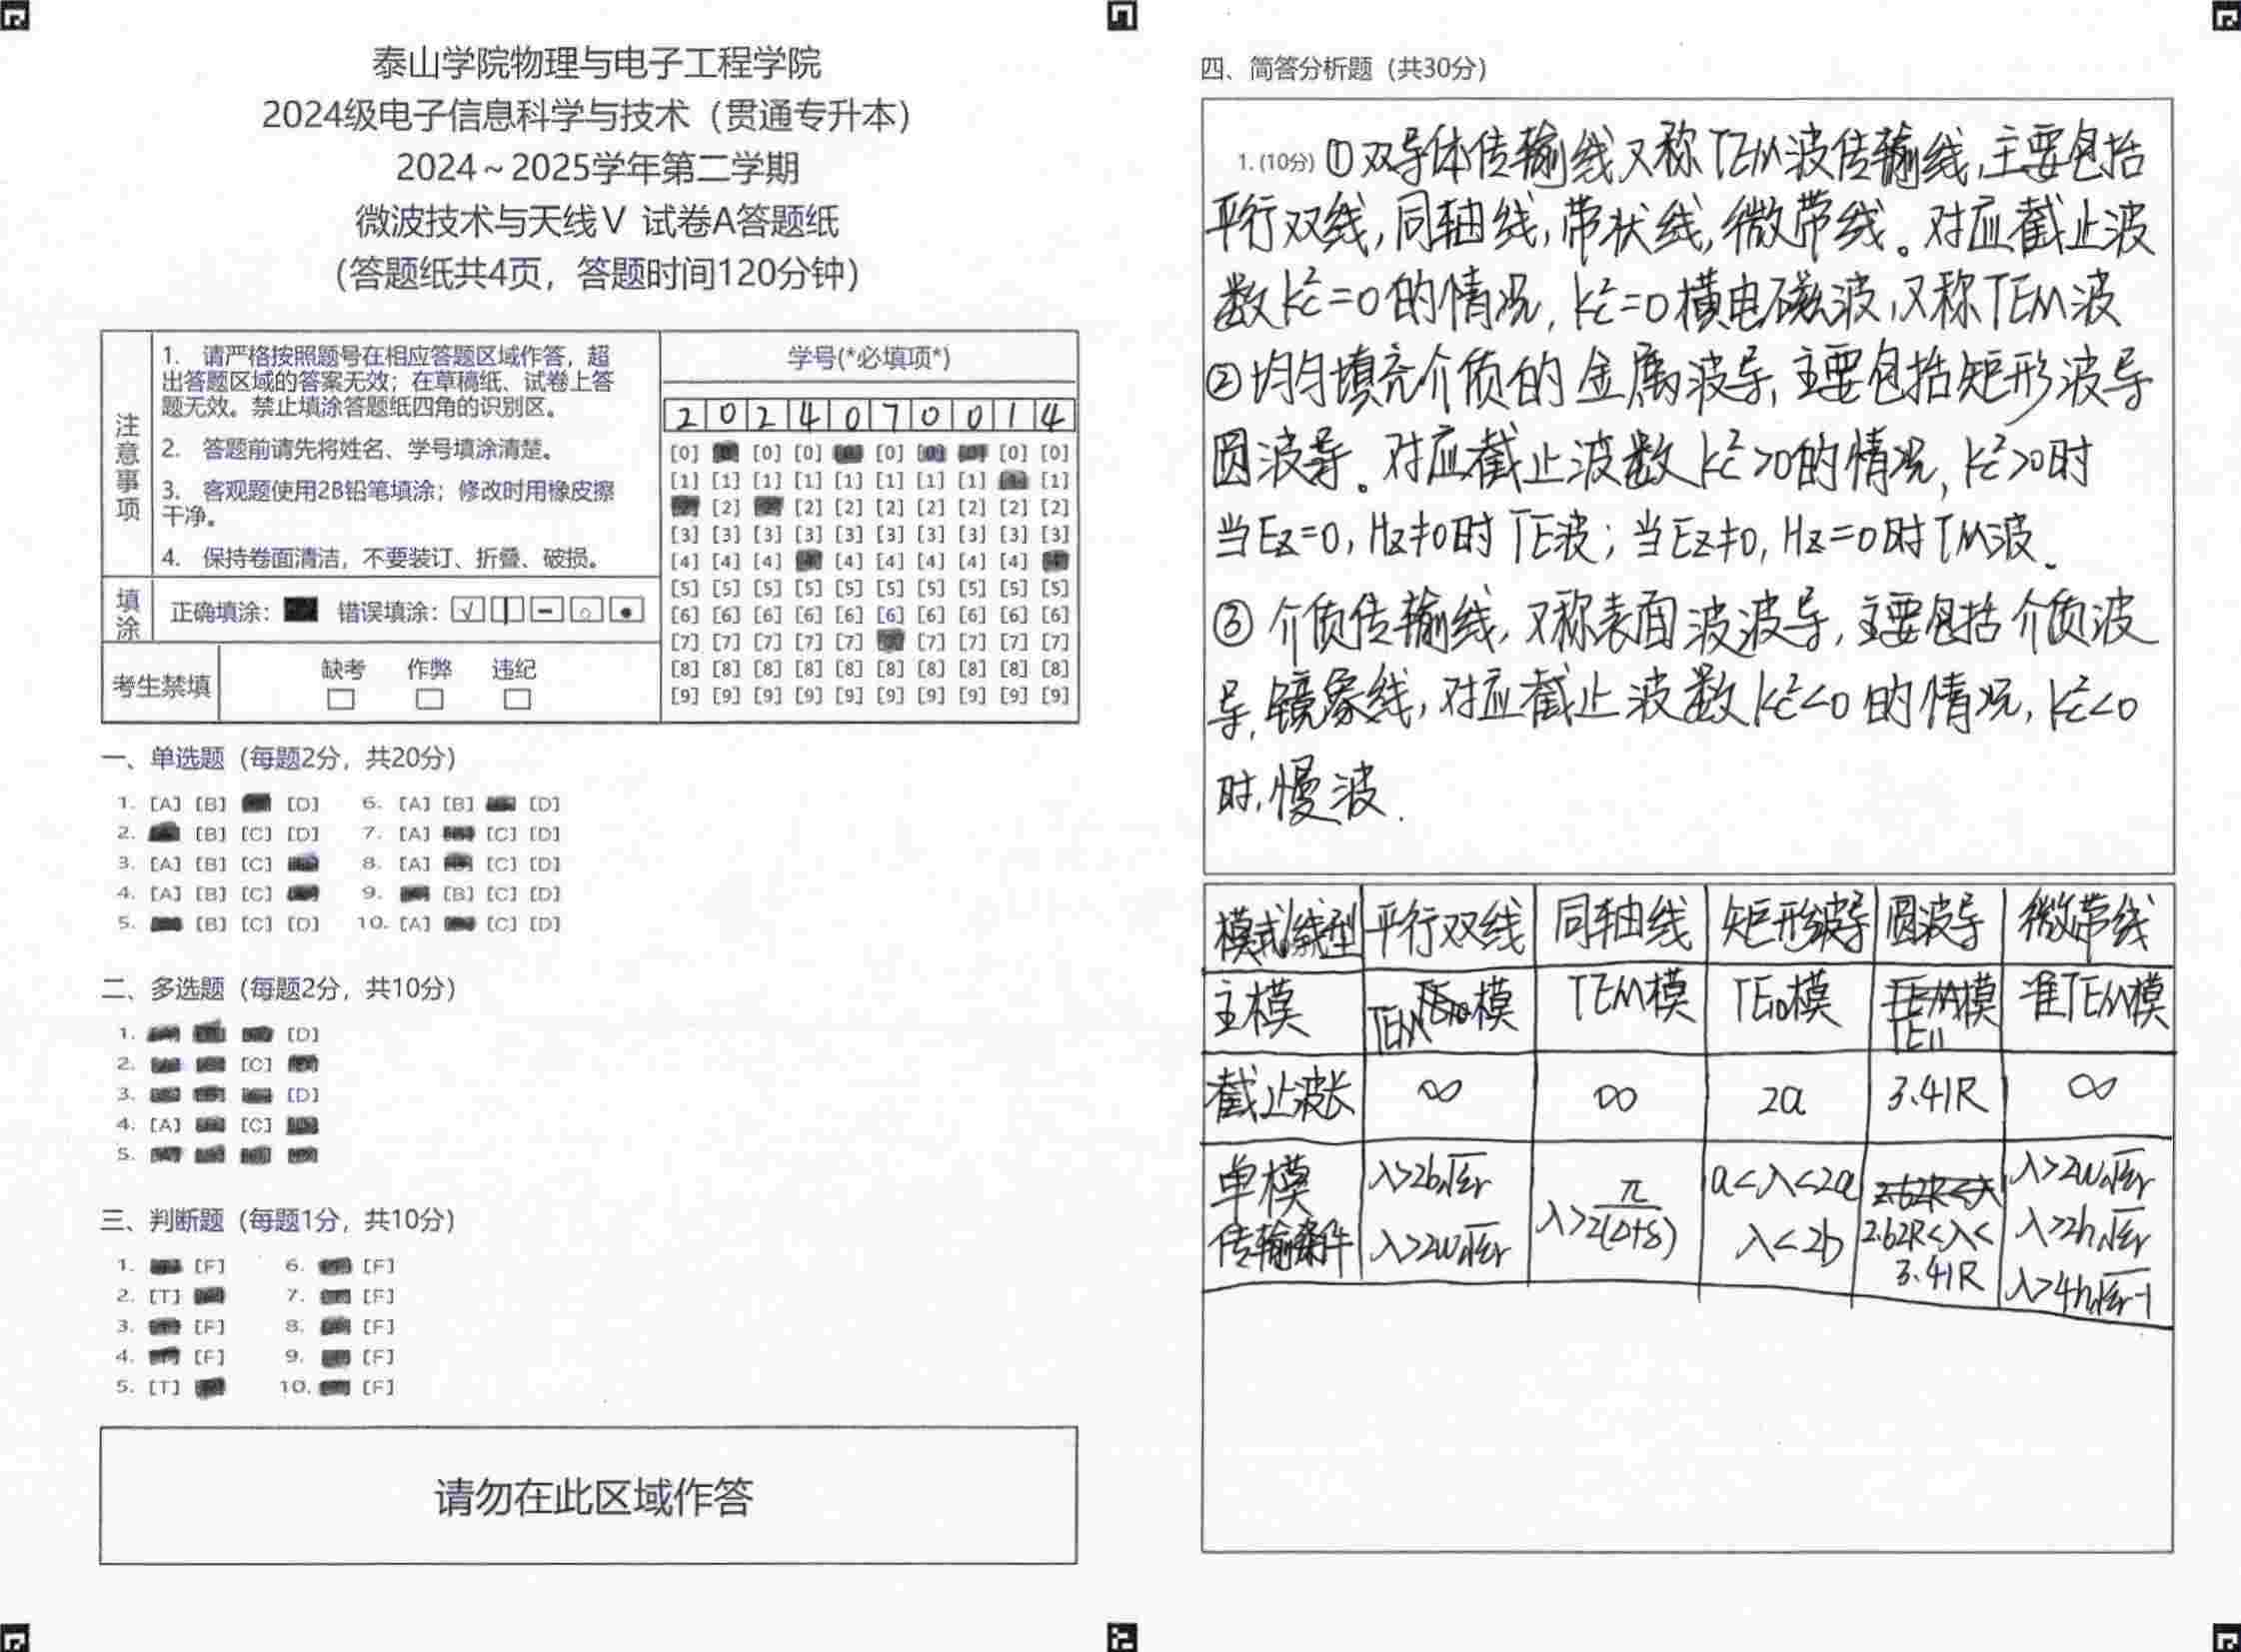 泰山学院物理与电子工程学院
2024级电子信息科学与技术（贯通专升本）
2024～2025学年第二学期
微波技术与天线Ⅴ 试卷A答题纸
（答题纸共4页，答题时间120分钟）
注意事项
1. 请严格按照题号在相应答题区域作答，超
出答题区域的答案无效；在草稿纸、试卷上答
题无效。禁止填涂答题纸四角的识别区。
2. 答题前请先将姓名、学号填涂清楚。
3. 客观题使用2B铅笔填涂；修改时用橡皮擦
干净。
4. 保持卷面清洁，不要装订、折叠、破损。
填涂
正确填涂： 错误填涂：
考生禁填
缺考 作弊 违纪
学号(*必填项*)
2 0 2 4 0 7 0 0 1 4
[0] [0] [0] [0] [0] [0] [0] [0]
[1] [1] [1] [1] [1] [1] [1] [1] [1]
[2] [2] [2] [2] [2] [2] [2] [2]
[3] [3] [3] [3] [3] [3] [3] [3] [3] [3]
[4] [4] [4] [4] [4] [4] [4] [4]
[5] [5] [5] [5] [5] [5] [5] [5] [5] [5]
[6] [6] [6] [6] [6] [6] [6] [6] [6] [6]
[7] [7] [7] [7] [7] [7] [7] [7] [7]
[8] [8] [8] [8] [8] [8] [8] [8] [8] [8]
[9] [9] [9] [9] [9] [9] [9] [9] [9] [9]
一、单选题（每题2分，共20分）
1. [A] [B] [D] 6. [A] [B] [D]
2. [B] [C] [D] 7. [A] [C] [D]
3. [A] [B] [C] 8. [A] [C] [D]
4. [A] [B] [C] 9. [B] [C] [D]
5. [B] [C] [D] 10. [A] [C] [D]
二、多选题（每题2分，共10分）
1. [D]
2. [C]
3. [D]
4. [A] [C]
5.
三、判断题（每题1分，共10分）
1. [F] 6. [F]
2. [T] 7. [F]
3. [F] 8. [F]
4. [F] 9. [F]
5. [T] 10. [F]
请勿在此区域作答
四、简答分析题（共30分）
1. (10分) ①双导体传输线又称TEM波传输线,主要包括
平行双线,同轴线,带状线,微带线。对应截止波
数kc²=0的情况, kc²=0横电磁波,又称TEM波
②均匀填充介质的金属波导,主要包括矩形波导
圆波导。对应截止波数kc²>0的情况, kc²>0时
当Ez=0, Hz≠0时TE波；当Ez≠0, Hz=0时TM波.
③介质传输线,又称表面波波导,主要包括介质波
导,镜象线,对应截止波数kc²<0的情况, kc²<0
时,慢波.
模式/线型 平行双线 同轴线 矩形波导 圆波导 微带线
主模 TEM模 TEM模 TE10模 TE11模 准TEM模
截止波长 ∞ ∞ 2a 3.41R ∞
单模
传输条件
λ>2b√εr
λ>2w√εr
λ>π/2(D+δ)
a<λ<2a
λ<2b
2.62R<λ<
3.41R
λ>2w√εr
λ>2h√εr
λ>4h√εr-1